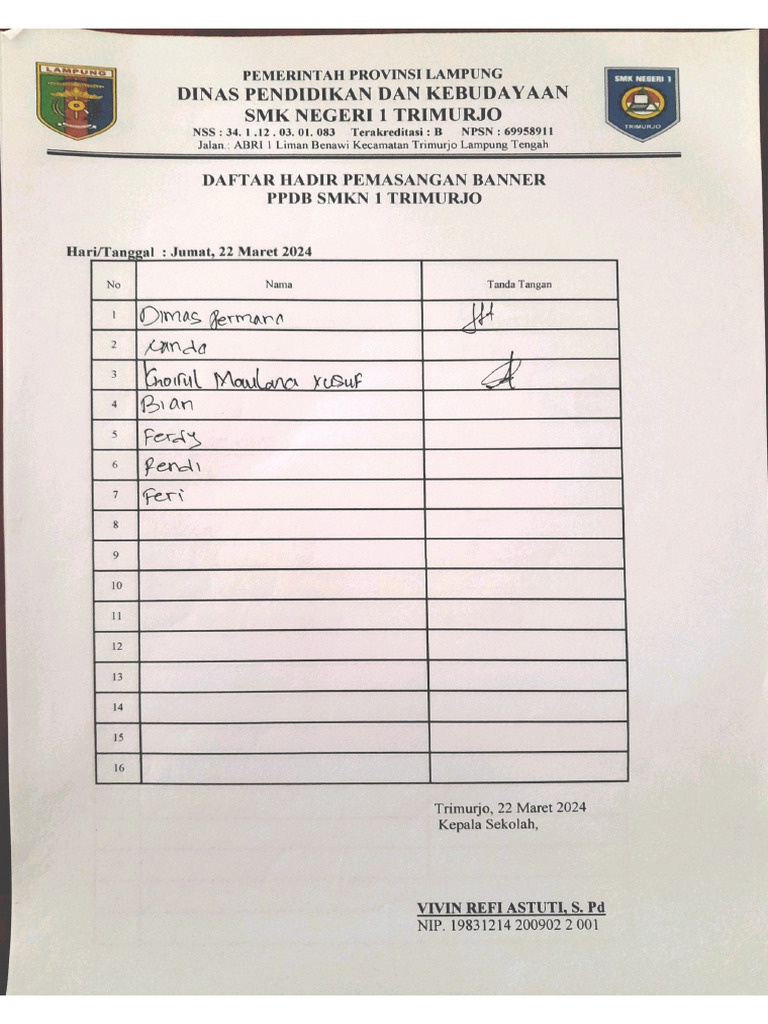 LAMPUNG
SMK NEGERI 1
TRIMURJO
PEMERINTAH PROVINSI LAMPUNG
DINAS PENDIDIKAN DAN KEBUDAYAAN
SMK NEGERI 1 TRIMURJO
NSS : 34. 1 .12 . 03. 01. 083 Terakreditasi : B NPSN : 69958911
Jalan.: ABRI 1 Liman Benawi Kecamatan Trimurjo Lampung Tengah
DAFTAR HADIR PEMASANGAN BANNER
PPDB SMKN 1 TRIMURJO
Hari/Tanggal : Jumat, 22 Maret 2024
No Nama Tanda Tangan
1 Dimas Permana
2
3 Khoirul Maulana Yusuf
4 Bian
5 Ferdy
6 Rendi
7 Feri
8
9
10
11
12
13
14
15
16
Trimurjo, 22 Maret 2024
Kepala Sekolah,
VIVIN REFI ASTUTI, S. Pd
NIP. 19831214 200902 2 001